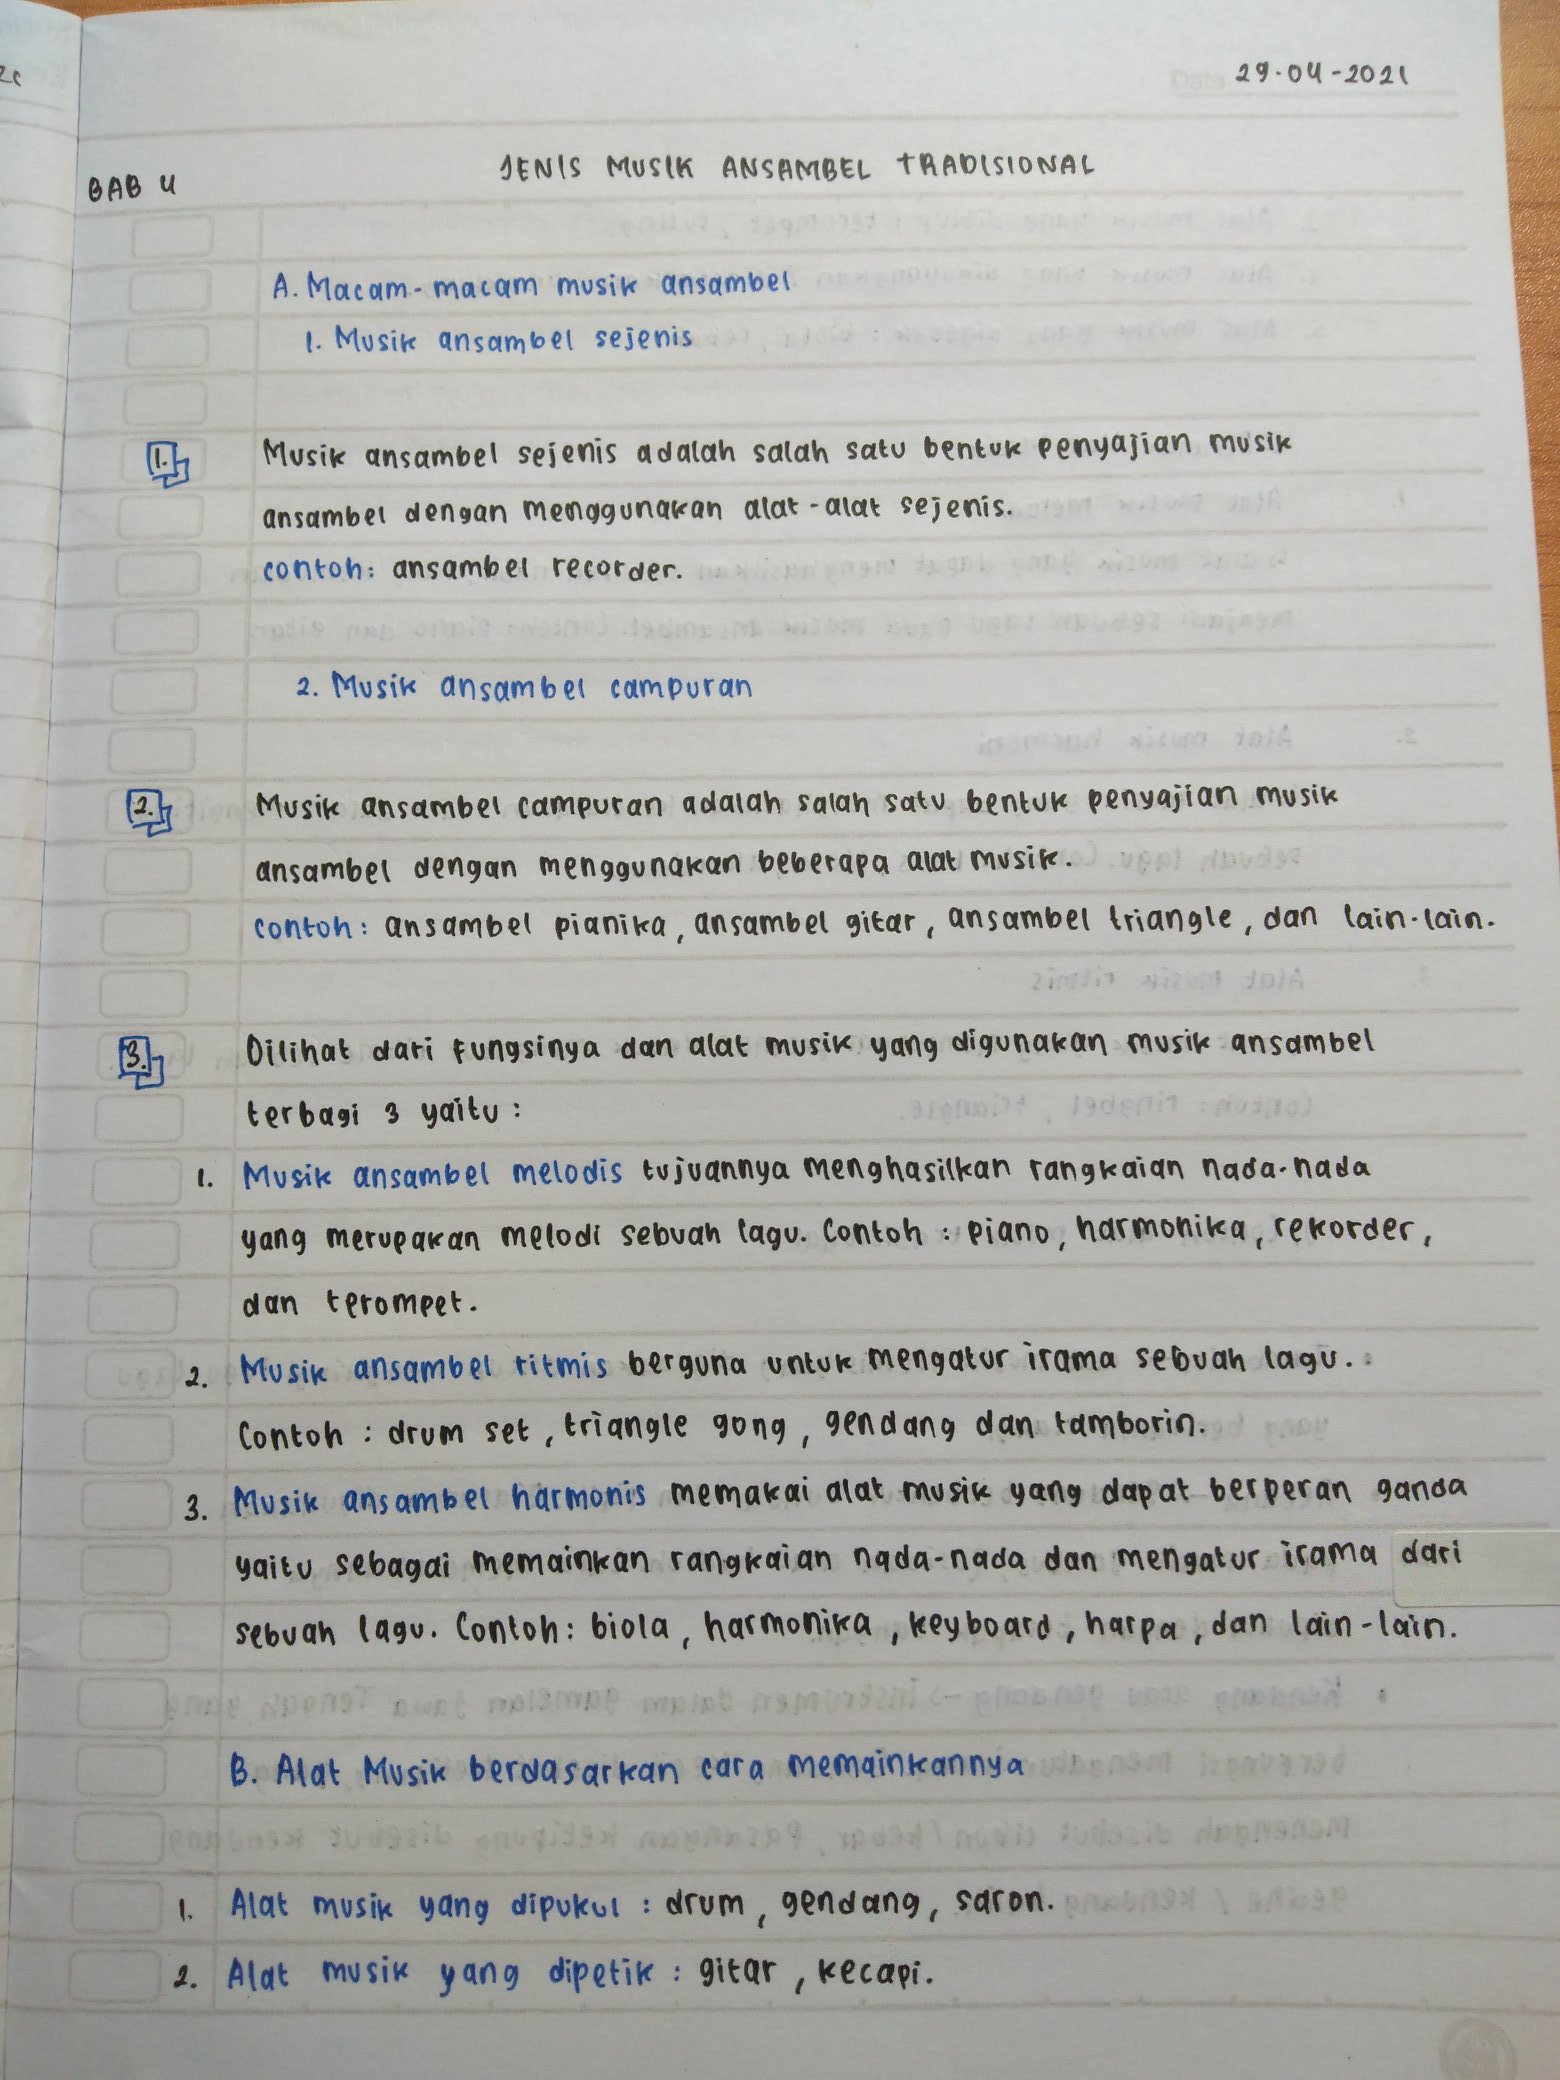 29-04-2021
BAB 4
JENIS MUSIK ANSAMBEL TRADISIONAL
A. Macam-macam musik ansambel
1. Musik ansambel sejenis
1. Musik ansambel sejenis adalah salah satu bentuk penyajian musik
ansambel dengan menggunakan alat-alat sejenis.
contoh: ansambel recorder.
2. Musik ansambel campuran
2. Musik ansambel campuran adalah salah satu bentuk penyajian musik
ansambel dengan menggunakan beberapa alat musik.
contoh: ansambel pianika, ansambel gitar, ansambel triangle, dan lain-lain.
3. Dilihat dari fungsinya dan alat musik yang digunakan musik ansambel
terbagi 3 yaitu:
1. Musik ansambel melodis tujuannya menghasilkan rangkaian nada-nada
yang merupakan melodi sebuah lagu. Contoh: piano, harmonika, rekorder,
dan terompet.
2. Musik ansambel ritmis berguna untuk mengatur irama sebuah lagu.
Contoh: drum set, triangle gong, gendang dan tamborin.
3. Musik ansambel harmonis memakai alat musik yang dapat berperan ganda
yaitu sebagai memainkan rangkaian nada-nada dan mengatur irama dari
sebuah lagu. Contoh: biola, harmonika, keyboard, harpa, dan lain-lain.
B. Alat Musik berdasarkan cara memainkannya
1. Alat musik yang dipukul: drum, gendang, saron.
2. Alat musik yang dipetik: gitar, kecapi.